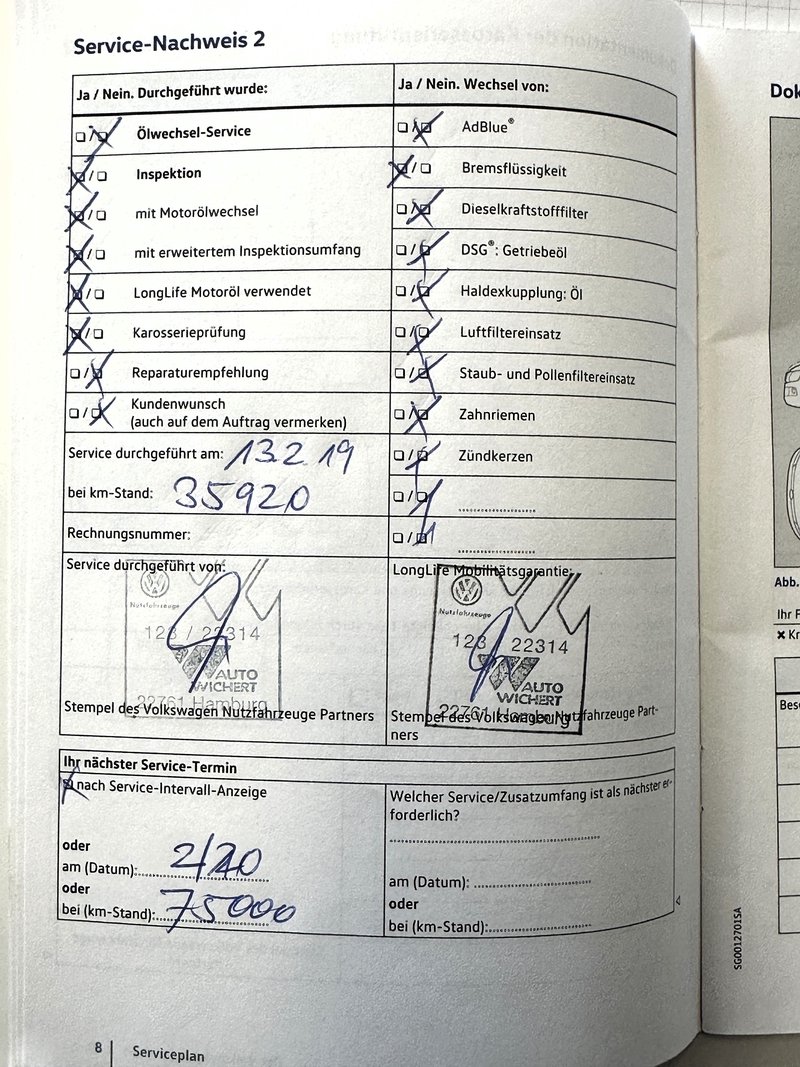 Service-Nachweis 2
Ja / Nein. Durchgeführt wurde:
Ölwechsel-Service
Inspektion
mit Motorölwechsel
mit erweitertem Inspektionsumfang
LongLife Motoröl verwendet
Karosserieprüfung
Reparaturempfehlung
Kundenwunsch
(auch auf dem Auftrag vermerken)
Service durchgeführt am: 13.2.19
bei km-Stand: 35920
Rechnungsnummer:
Service durchgeführt von:
Nutzfahrzeuge
123 / 22314
AUTO
WICHERT
22761 Hamburg
Stempel des Volkswagen Nutzfahrzeuge Partners
Ja / Nein. Wechsel von:
AdBlue®
Bremsflüssigkeit
Dieselkraftstofffilter
DSG®: Getriebeöl
Haldexkupplung: Öl
Luftfiltereinsatz
Staub- und Pollenfiltereinsatz
Zahnriemen
Zündkerzen
LongLife Mobilitätsgarantie:
Nutzfahrzeuge
123 22314
AUTO
WICHERT
22761 Hamburg
Stempel des Volkswagen Nutzfahrzeuge Part-
ners
Ihr nächster Service-Termin
nach Service-Intervall-Anzeige
oder
am (Datum): 2/20
oder
bei (km-Stand): 75000
Welcher Service/Zusatzumfang ist als nächster er-
forderlich?
am (Datum):
oder
bei (km-Stand):
8 Serviceplan
Dok
Abb.
Ihr F
Kr
Bes
SG0012701SA